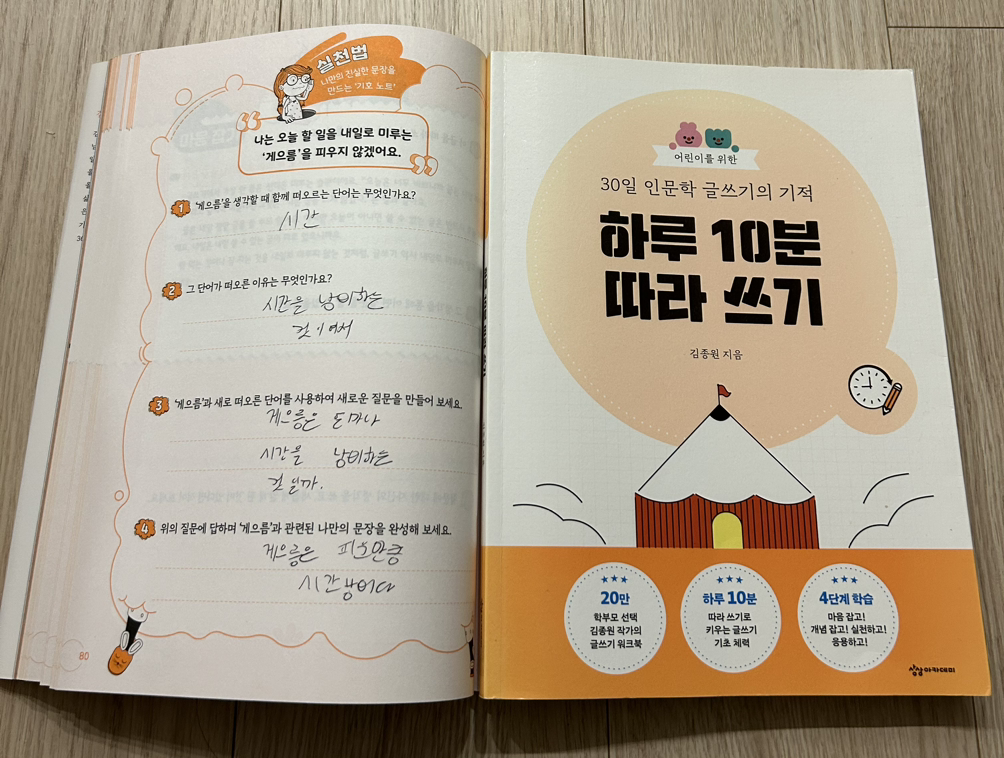 실천법
나만의 진실한 문장을
만드는 '기호 노트'
나는 오늘 할 일을 내일로 미루는
'게으름'을 피우지 않겠어요.
1 '게으름'을 생각할 때 함께 떠오르는 단어는 무엇인가요?
시간
2 그 단어가 떠오른 이유는 무엇인가요?
시간을 낭비하는
것이여서
3 '게으름'과 새로 떠오른 단어를 사용하여 새로운 질문을 만들어 보세요.
게으름은 얼마나
시간을 낭비하는
것일까.
4 위의 질문에 답하며 '게으름'과 관련된 나만의 문장을 완성해 보세요.
게으름은 피운만큼
시간낭비다
80
어린이를 위한
30일 인문학 글쓰기의 기적
하루 10분
따라 쓰기
김종원 지음
20만
학부모 선택
김종원 작가의
글쓰기 워크북
하루 10분
따라 쓰기로
키우는 글쓰기
기초 체력
4단계 학습
마음 잡고!
개념 잡고! 실천하고!
응용하고!
상상아카데미